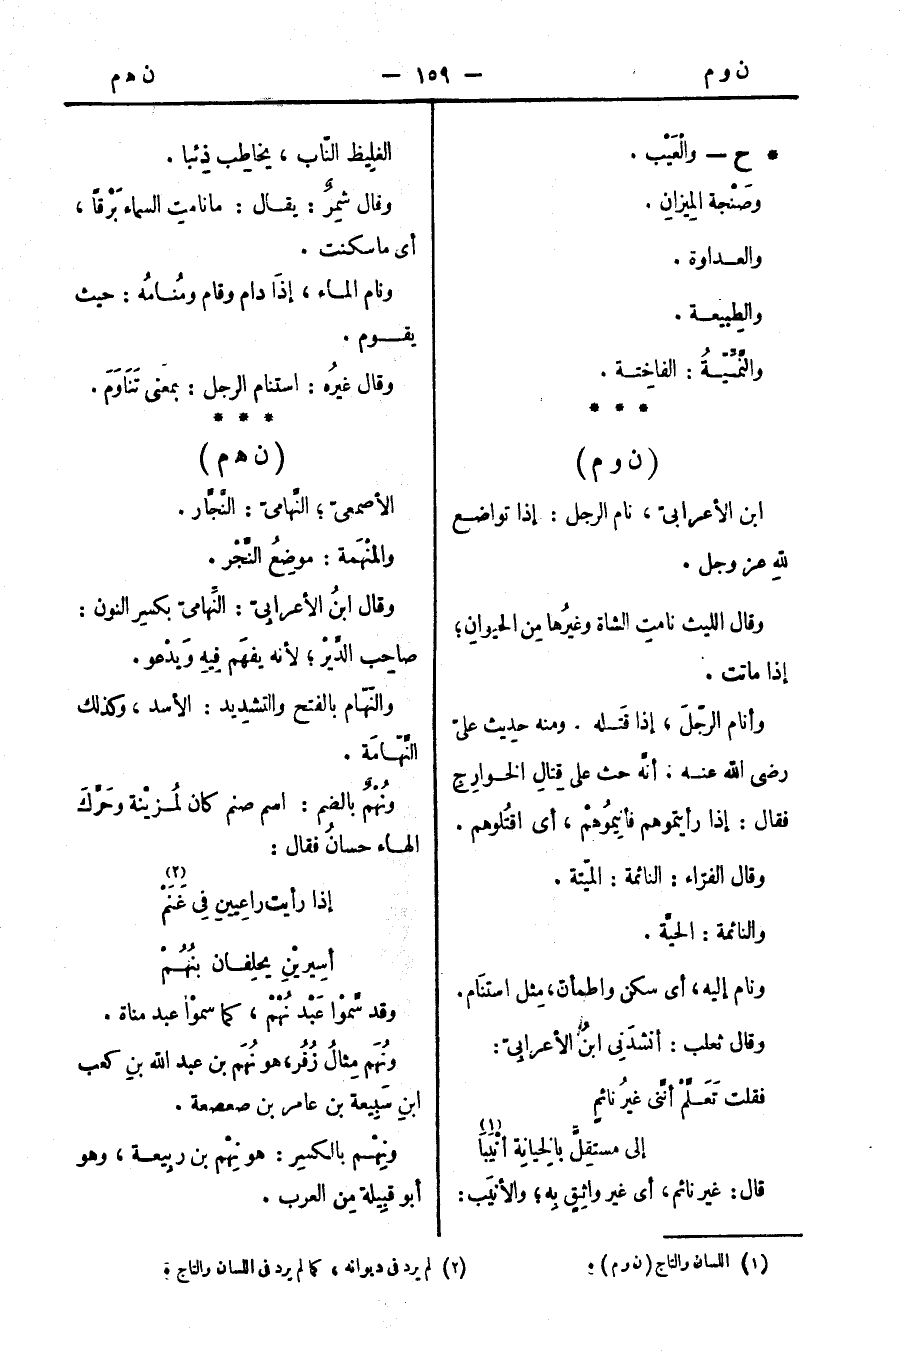 ن و م — ١٥٩ — ن ه م
* ح — والْعَيْب .
وصَنْجة المِيزان .
والعــداوة .
والطبِيعــة .
والنُّمِّيّــةُ : الفاخِتــة .
* * *
( ن و م )
ابن الأعرابىّ ، نام الرجل : إذا تواضــع
للهِ عز وجل .
وقال الليث نامتِ الشاة وغيرُها مِن الحيوانِ ؛
إذا ماتت .
وأنام الرّجلَ ، إذا قَتــله . ومنه حديث علىّ
رضى الله عنــه : أنَّه حث على قِتالِ الخوارِجِ
فقال : إذا رأيتموهم فأنِيمُوهُمْ ، أى اقتُلوهم .
وقال الفرّاء : النائمة : الميّتة .
والنائمة : الحيَّة .
ونام إليه ، أى سكن واطمأن ، مِثل استنَام .
وقال ثعلب : أنشدَنِى ابنُ الأعرابِىّ :
فقلت تَعَــلَّمْ أنَّنِى غيرُ نائمٍ
إلى مستقِلٍّ بالخِيانةِ أنْيَبَا (١)
قال : غير نائم ، أى غير واثِقٍ بِه ؛ والأنيَب :
الغلِيظ النّاب ، يخاطِب ذِئبا .
وقال شَمِرٌ : يقــال : مانامتِ السماء بَرْقاً ،
أى ماسكنت .
ونام المــاء ، إذَا دام وقام ومُنــامُه : حيث
يقــــوم .
وقال غيرُه : استنام الرجل : بمعنى تَنَاوَمَ .
* * *
( ن ه م )
الأصمعىّ ؛ النَّهامىّ : النَّجَّار .
والمَنْهَمة : موضِعُ النَّجْر .
وقال ابنُ الأعرابِىّ : النِّهامىّ بكسرِ النون :
صاحِب الدَّيْر ؛ لأنه يفهَم فِيهِ وَيَدْعو .
والنَّهّام بالفتح والتشديد : الأسد ، وكذلك
النَّهّــامَة .
ونُهْمٌ بالضم : اسم صنم كان لُمــزيْنة وحَرَّكَ
الهــاء حسانُ فقال :
إذا رأيت راعِيينِ فِى غَنَمْ (٢)
أسِيريْنِ يحلِفــان بنُهُــمْ
وقد سَّموْا عَبْد نُهْمْ ، كما سموْا عبد مناة .
ونُهَم مِثالُ زُفُر ، هو نُهَم بن عبد الله بنِ كعب
ابنِ سَبِيعة بن عامر بن صعصعة .
ونِهْــم بالكسر : هو نِهْم بن ربِيعــة ، وهو
أبو قبِيلة مِن العرب .
(١) اللسان والتاج (ن و م) :
(٢) لم يرد فى ديوانه ، كما لم يرد فى اللسان والتاج :